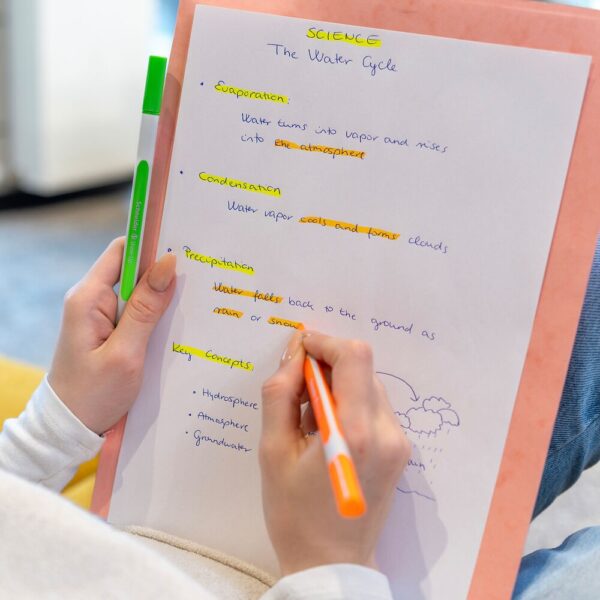 SCIENCE
The Water Cycle
• Evaporation:
Water turns into vapor and rises
into the atmosphere
• Condensation
Water vapor cools and forms clouds
• Precipitation
Water falls back to the ground as
rain or snow
Key Concepts:
• Hydrosphere
• Atmosphere
• Groundwater
Schneider